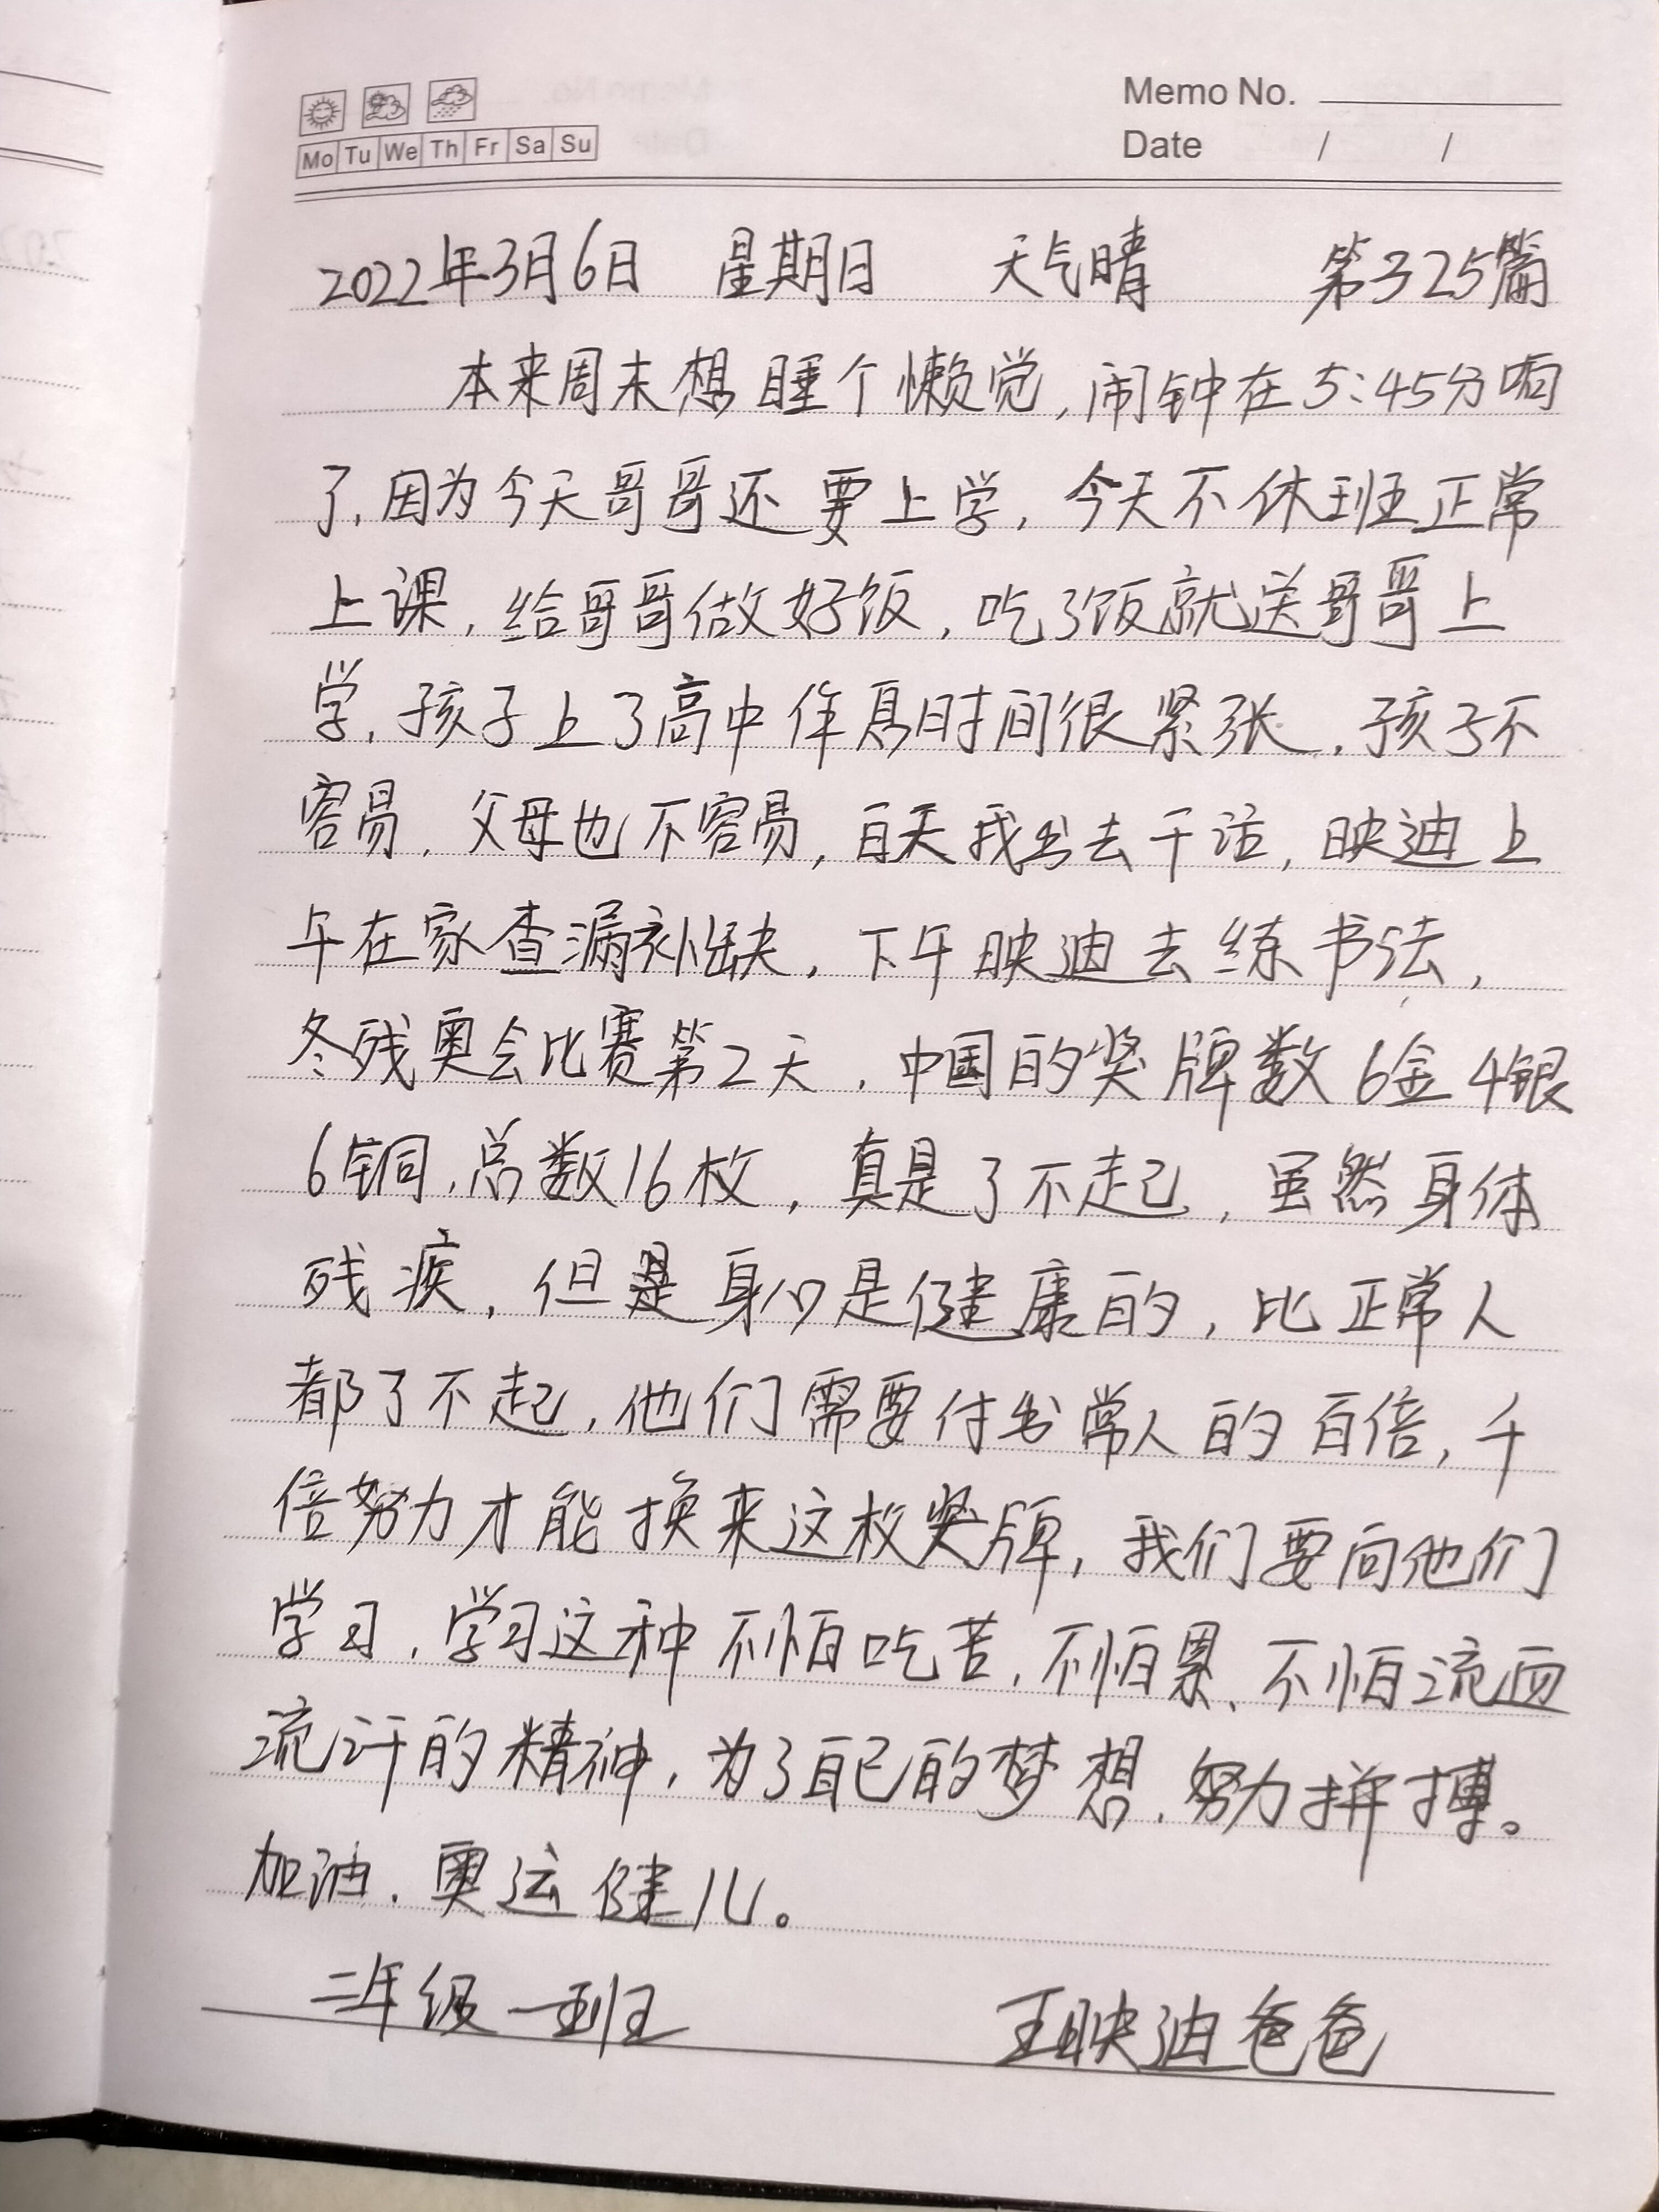 Memo No.
Mo Tu We Th Fr Sa Su
Date / /
2022年3月6日 星期日 天气晴 第325篇
本来周末想睡个懒觉,闹钟在5:45分响
了,因为今天哥哥还要上学,今天不休班正常
上课,给哥哥做好饭,吃了饭就送哥哥上
学,孩子上了高中作息时间很紧张,孩子不
容易,父母也不容易,白天我出去干活,映迪上
午在家查漏补缺,下午映迪去练书法,
冬残奥会比赛第2天,中国的奖牌数6金4银
6铜,总数16枚,真是了不起,虽然身体
残疾,但是身心是健康的,比正常人
都了不起,他们需要付出常人的百倍,千
倍努力才能换来这枚奖牌,我们要向他们
学习,学习这种不怕吃苦,不怕累、不怕流血
流汗的精神,为了自己的梦想,努力拼搏。
加油,奥运健儿。
二年级一班 王映迪爸爸